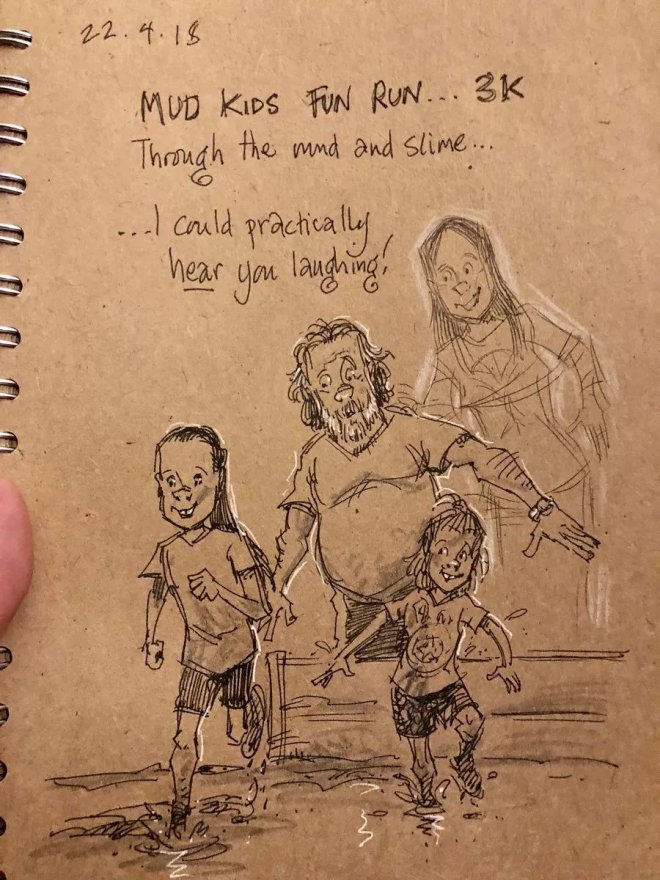 22.4.18
MUD KIDS FUN RUN... 3K
Through the mud and slime...
...I could practically
hear you laughing!